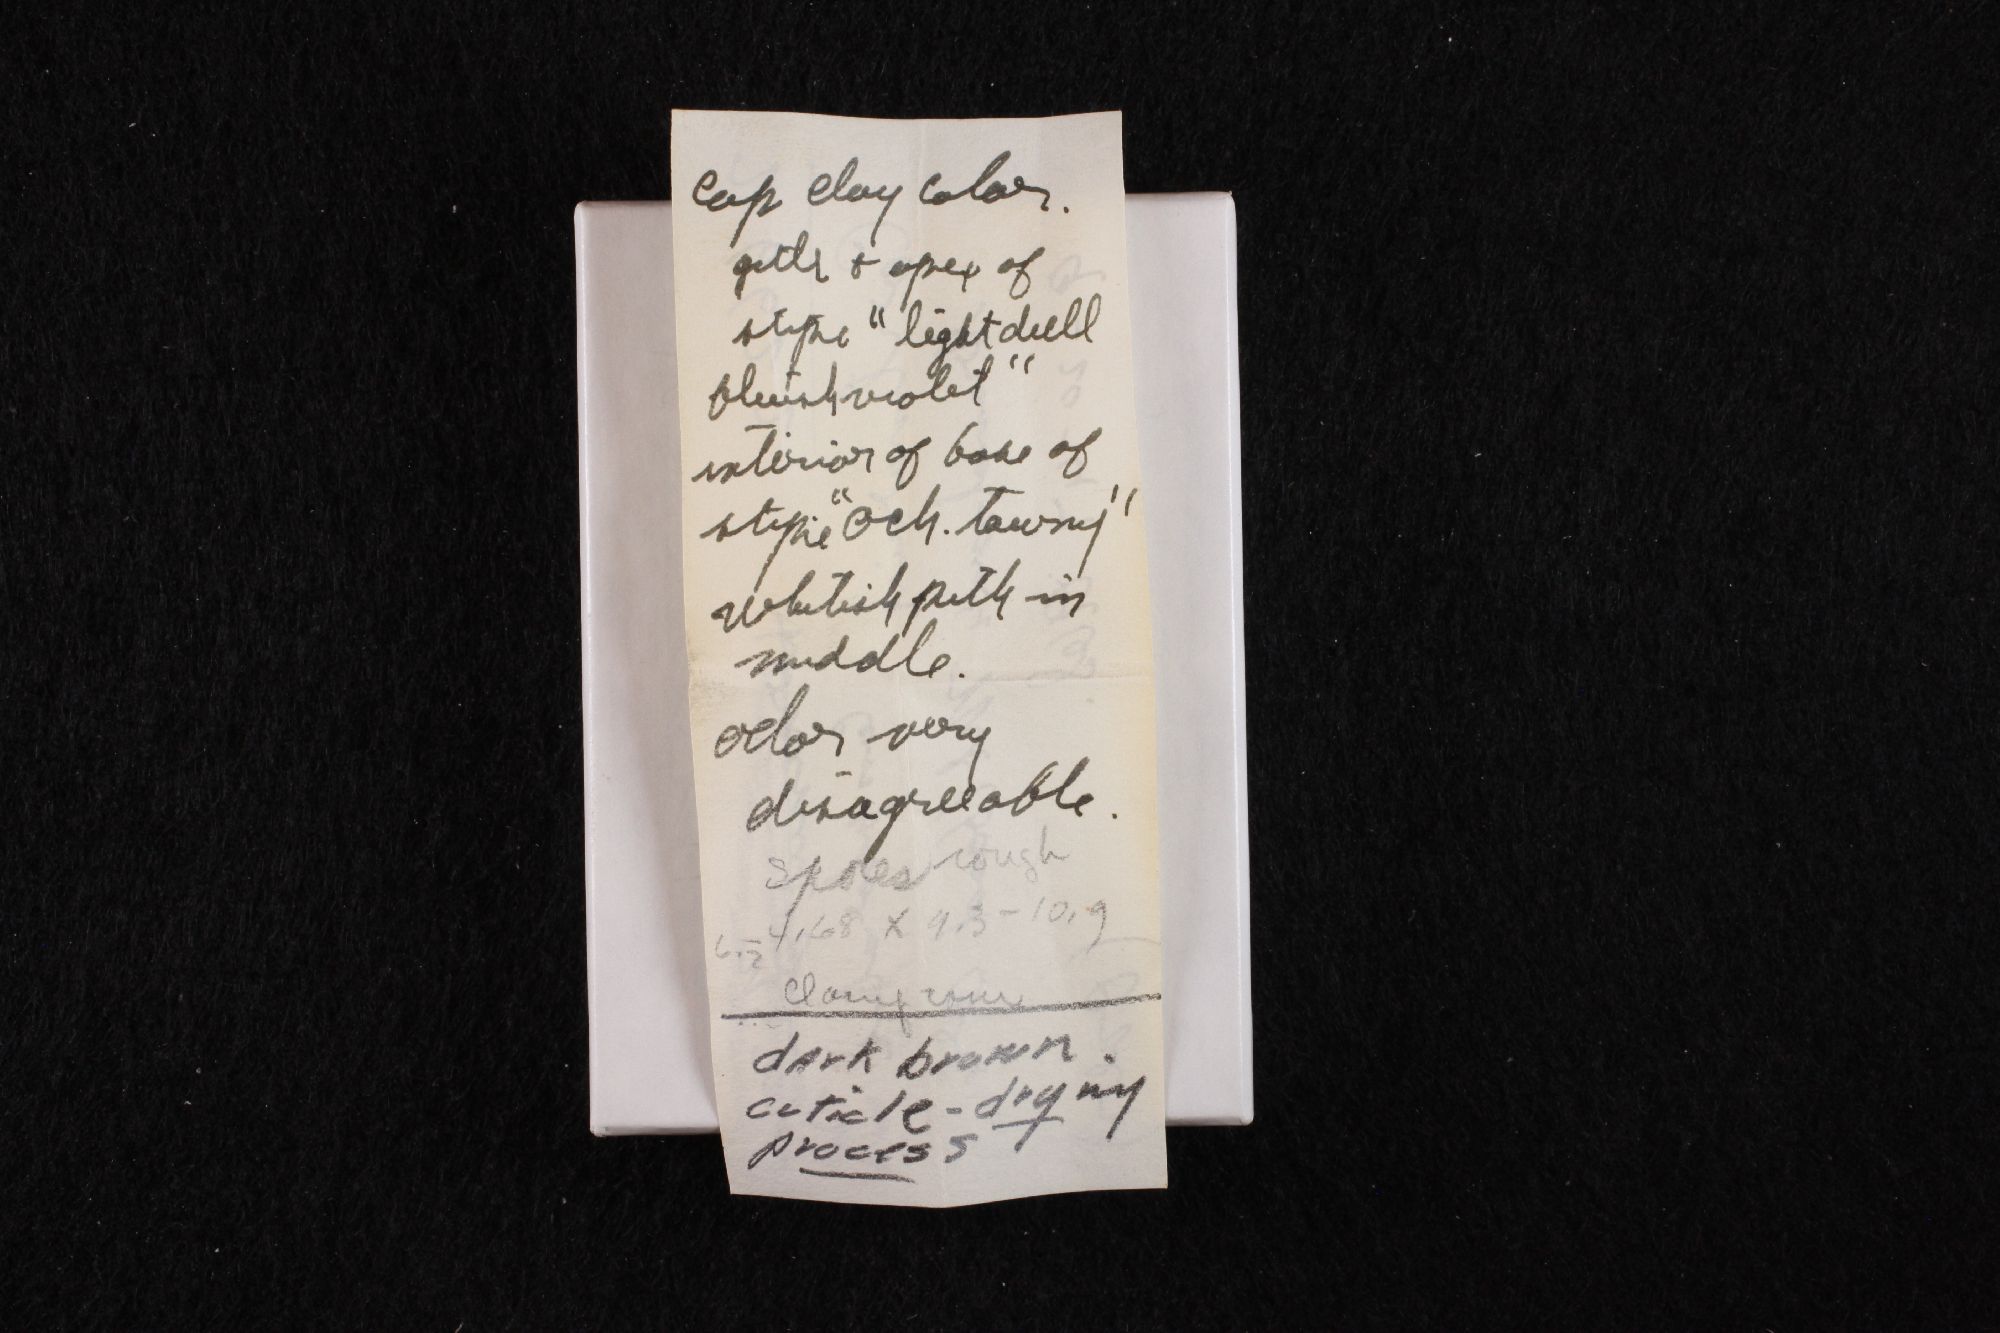 Cap clay color.
gills + apex of
stipe "light dull
bluish violet"
interior of base of
stipe "Och. tawny"
whitish pith in
middle.
odor very
disagreeable.
Spores rough
4.68 X 9.3-10.9
dark brown.
cuticle - dry my
process